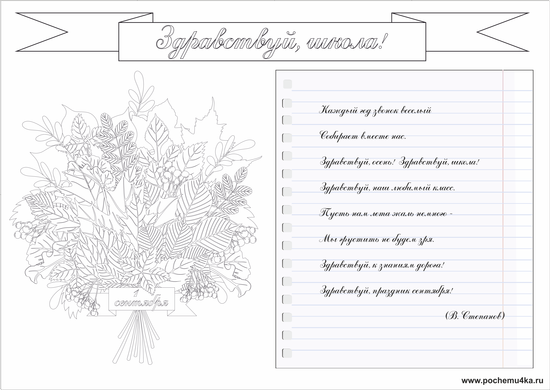 Здравствуй, школа!
Каждый год звонок веселый
Собирает вместе нас.
Здравствуй, осень! Здравствуй, школа!
Здравствуй, наш любимый класс.
Пусть нам лета жаль немного -
Мы грустить не будем зря.
Здравствуй, к знаниям дорога!
Здравствуй, праздник сентября!
(В. Степанов)
1
сентября
www.pochemu4ka.ru